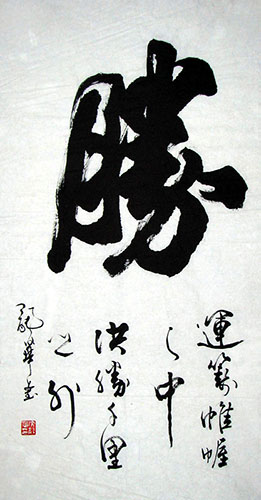 勝
運籌帷幄
之中
決勝千里
之外